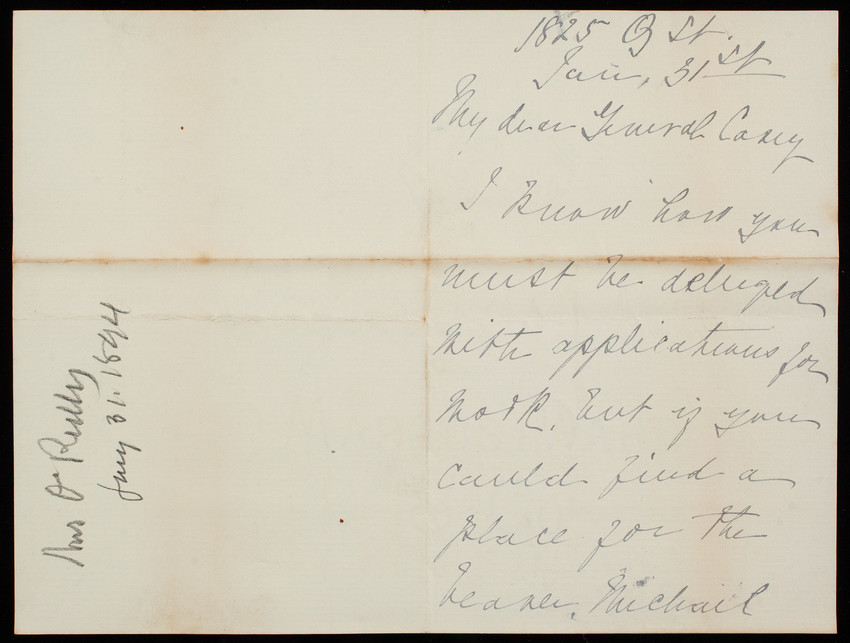 1825 Q St.
Jan, 31st
My dear General Casey
I know how you
must be deluged
with applications for
work, but if you
could find a
place for the
bearer, Michael
Mrs O'Reilly
Jany 31. 1894